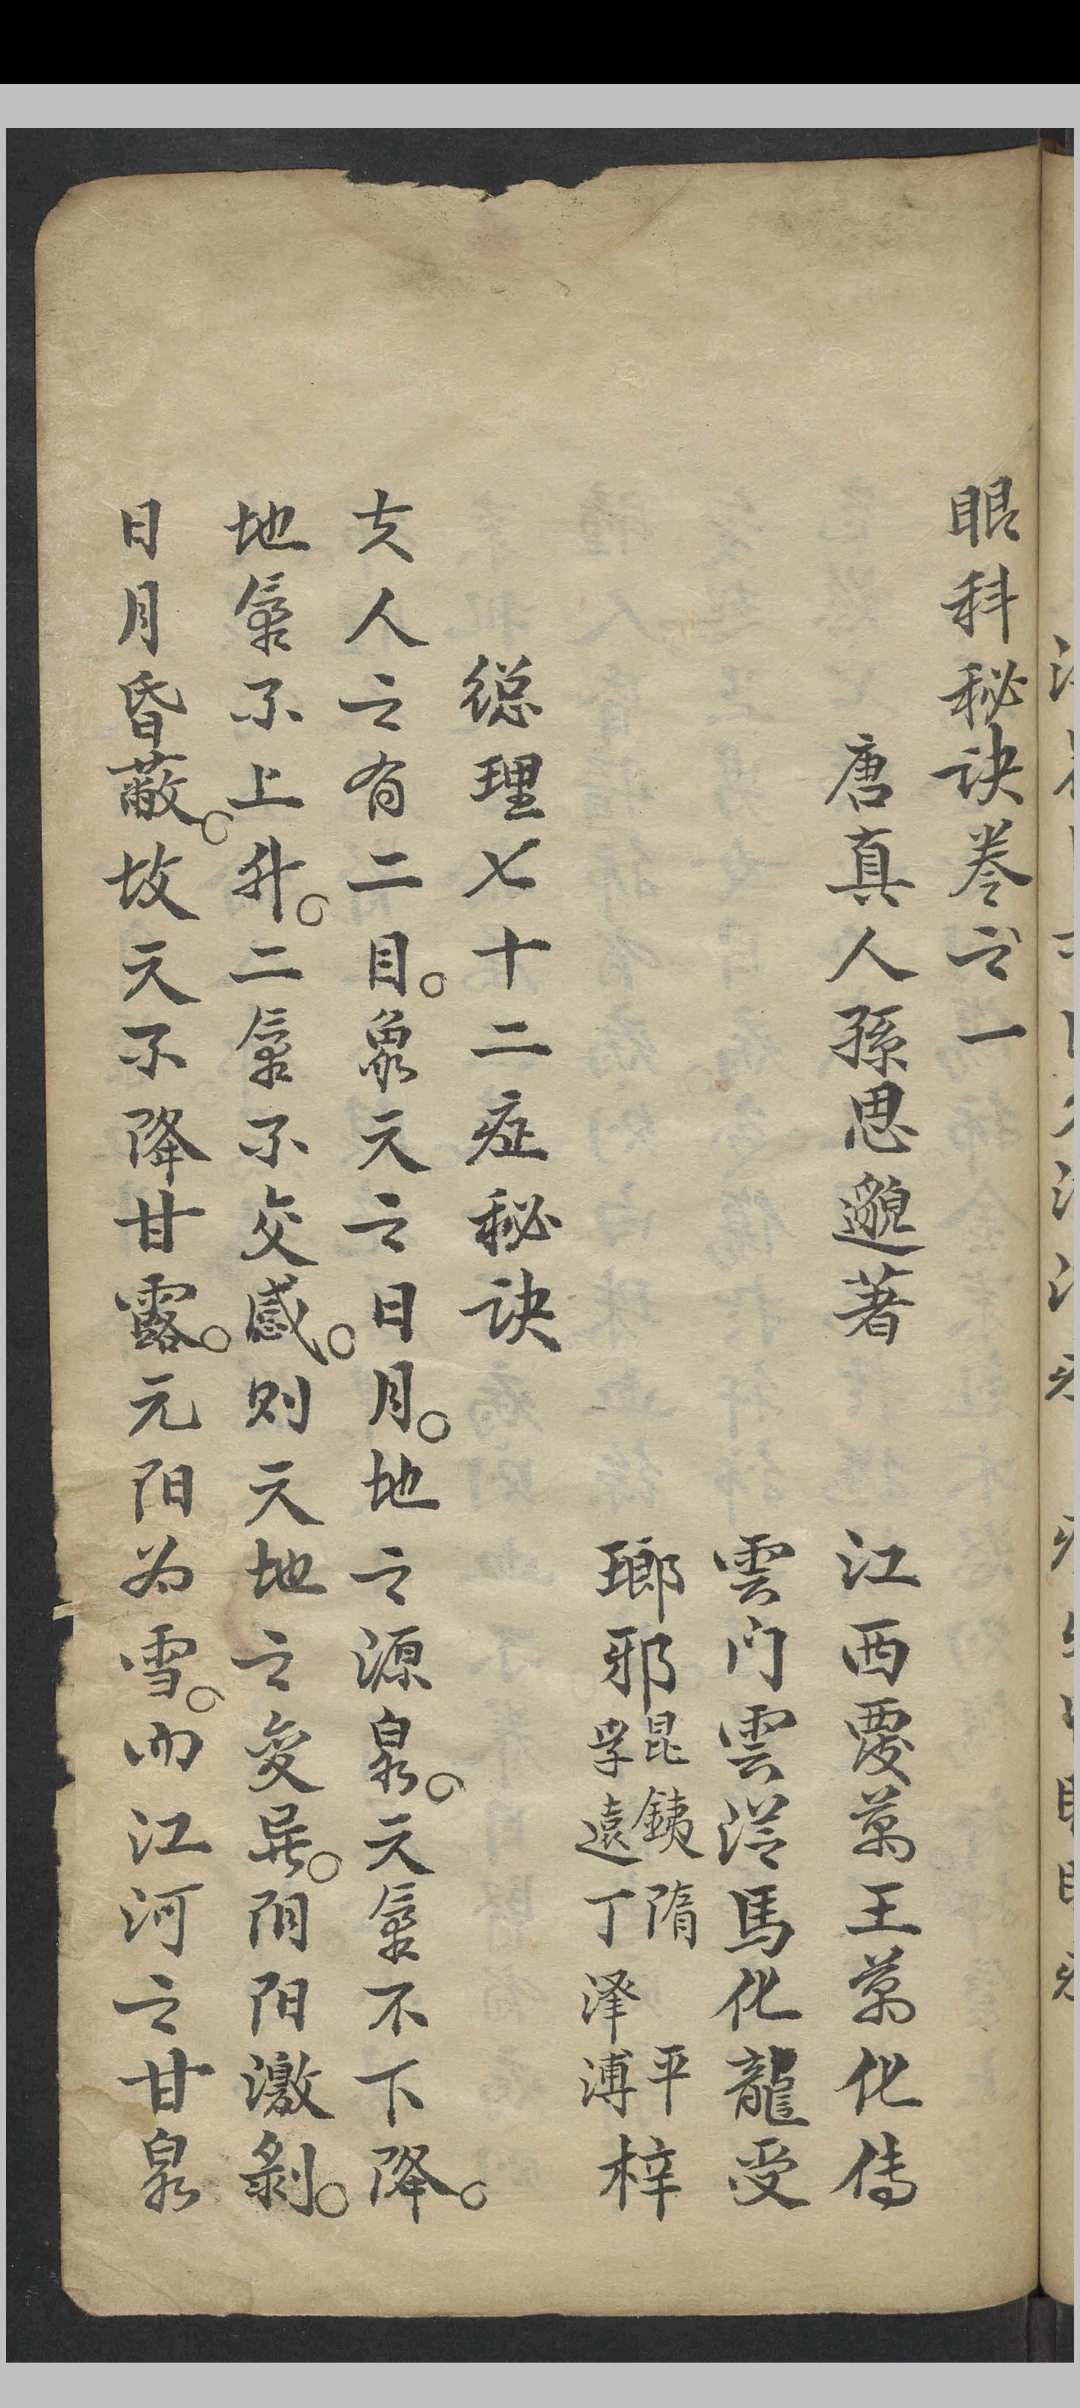 眼科秘诀卷之一
唐真人孫思邈著
江西慶萬王萬化傳
雲门雲從馬化龍受
瑯邪
昆銕隋 平
孚遠丁泽溥
梓
總理七十二症秘诀
夫人之有二目。象天之日月。地之源泉。天氣不下降。
地氣不上升。二氣不交感。则天地之变异。阴阳激剝。
日月昏蔽。故天不降甘露。元阳为雪。而江河之甘泉